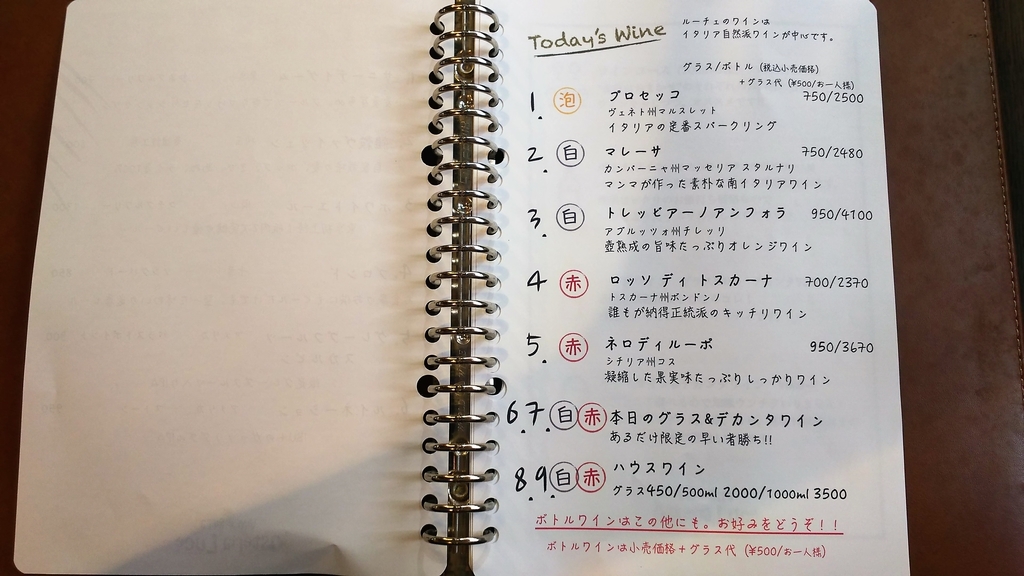 Today's Wine
ルーチェのワインは
イタリア自然派ワインが中心です。
グラス/ボトル (税込小売価格)
+グラス代 (¥500/お一人様)
1. 泡 プロセッコ 750/2500
ヴェネト州マルスレット
イタリアの定番スパークリング
2. 白 マレーサ 750/2480
カンパーニャ州マッセリア スタルナリ
マンマが作った素朴な南イタリアワイン
3. 白 トレッビアーノアンフォラ 950/4100
アブルッツォ州チレッリ
壺熟成の旨味たっぷりオレンジワイン
4 赤 ロッソ ディ トスカーナ 700/2370
トスカーナ州ボンドンノ
誰もが納得正統派のキッチリワイン
5. 赤 ネロディルーポ 950/3670
シチリア州コス
凝縮した果実味たっぷりしっかりワイン
6.7. 白 赤 本日のグラス&デカンタワイン
あるだけ限定の早い者勝ち!!
8.9. 白 赤 ハウスワイン
グラス450/500ml 2000/1000ml 3500
ボトルワインはこの他にも。お好みをどうぞ!!
ボトルワインは小売価格+グラス代 (¥500/お一人様)